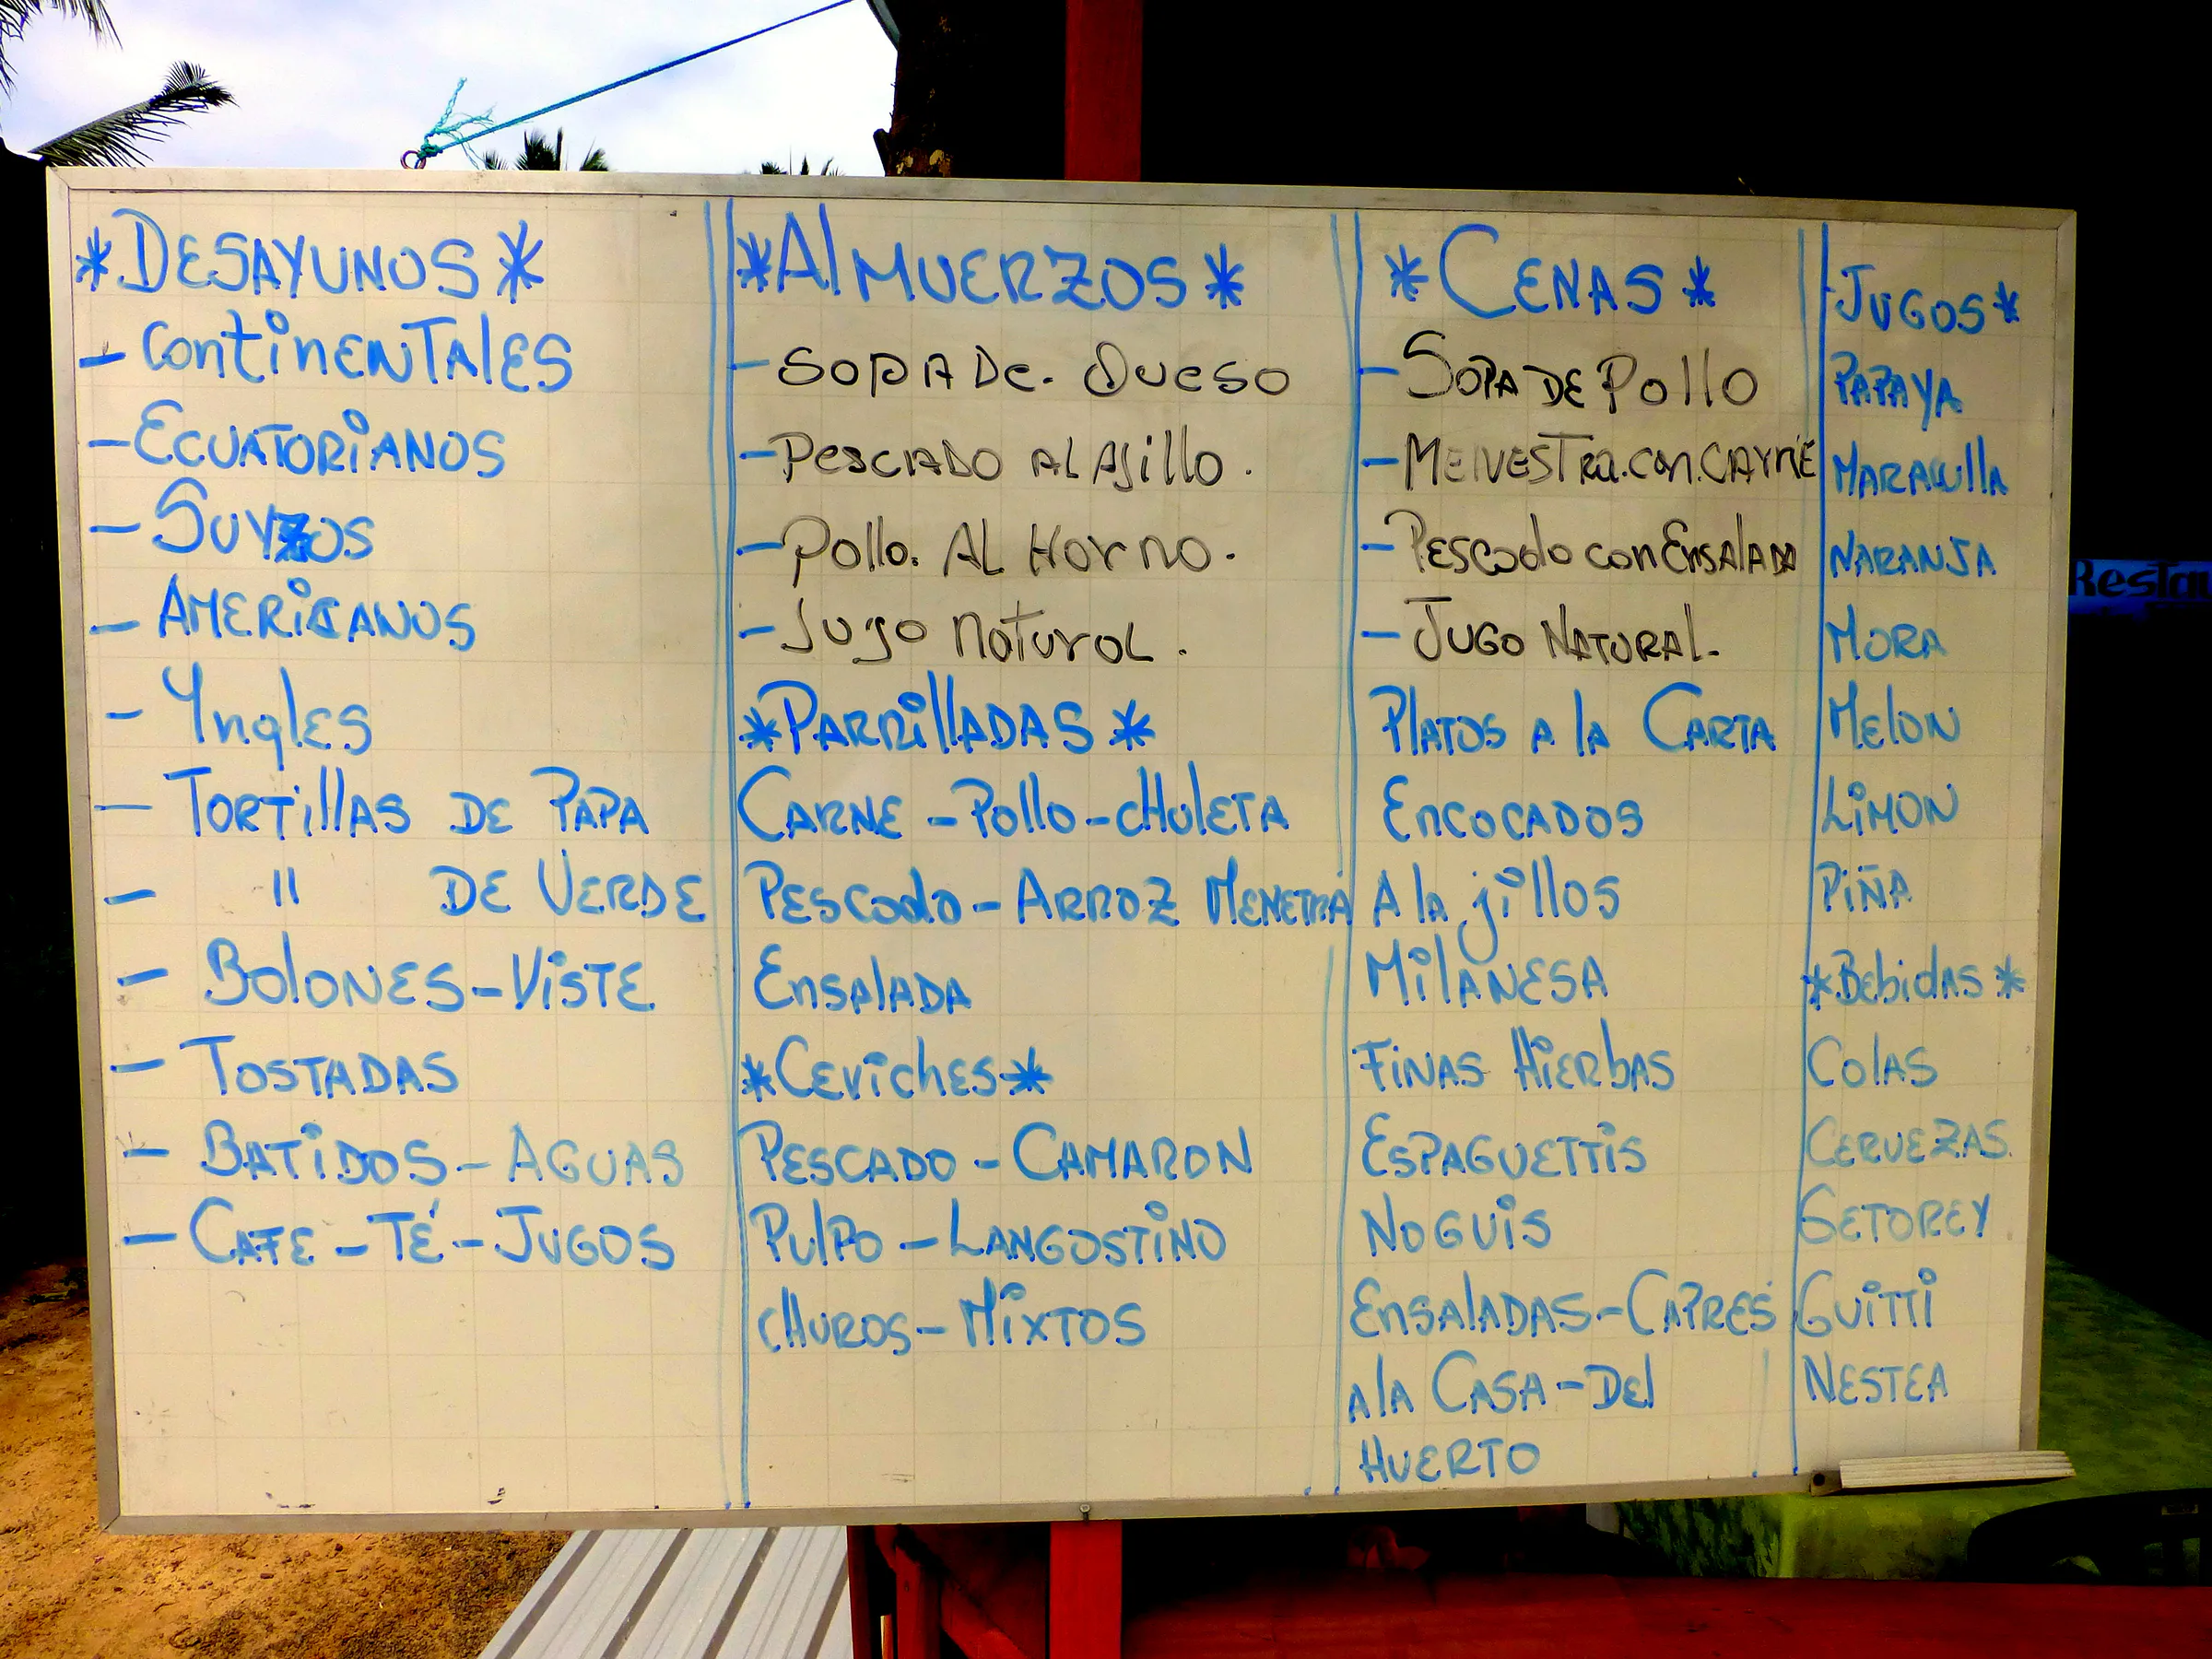 *DESAYUNOS*
- CONTINENTALES
- ECUATORIANOS
- SUYZOS
- AMERICANOS
- YNGLES
- TORTILLAS DE PAPA
- " DE VERDE
- BOLONES - VISTE
- TOSTADAS
- BATIDOS - AGUAS
- CAFE - TÉ - JUGOS
*ALMUERZOS*
- SOPA De. QUESO
- PESCADO AL AJillo.
- Pollo. AL HORNO.
- JUGO NATURAL.
*PARRILLADAS*
CARNE - Pollo - CHULETA
PESCADO - ARROZ MENETRA
ENSALADA
*CEVICHES*
PESCADO - CAMARON
PULPO - LANGOSTINO
CHUROS - MIXTOS
*CENAS*
- SOPA DE Pollo
- MENVESTRA. CON. CARNE
- PESCADO CON ENSALADA
- JUGO NATURAL.
PLATOS A LA CARTA
ENCOCADOS
A la jillos
MILANESA
FINAS HIERBAS
ESPAGUETTIS
NOGUIS
ENSALADAS - CAPRES
A LA CASA - DEL
HUERTO
JUGOS*
PAPAYA
MARACUILLA
NARANJA
MORA
MELON
LIMON
PIÑA
*BEBIDAS*
COLAS
CERVEZAS.
GETOREY
GUITTI
NESTEA
Restau